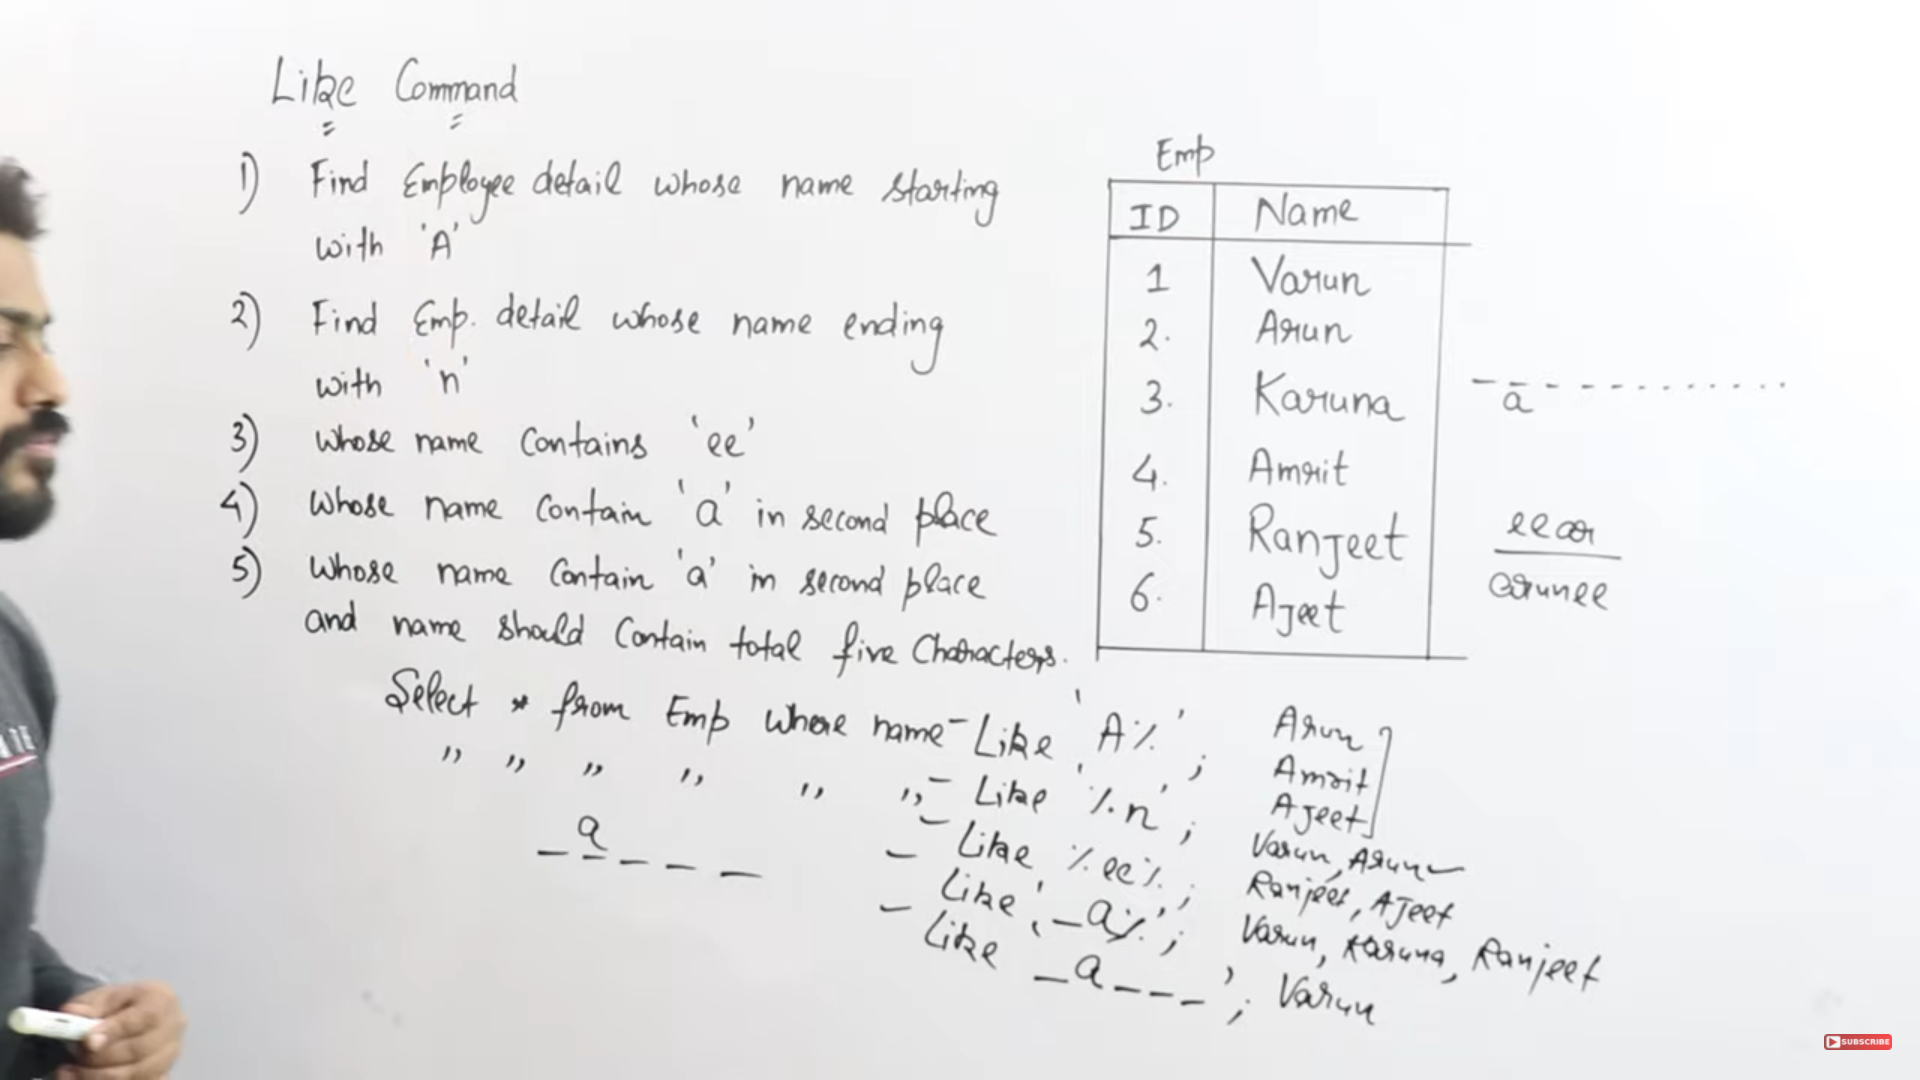 Like Command
1) Find Employee detail whose name starting
with 'A'
2) Find Emp. detail whose name ending
with 'n'
3) whose name contains 'ee'
4) Whose name contain 'a' in second place
5) Whose name contain 'a' in second place
and name should contain total five characters.
Emp
ID Name
1 Varun
2. Arun
3. Karuna
4. Amrit
5. Ranjeet
6. Ajeet
_ a
eear
arunee
Select * from Emp where name Like 'A%';
" " " " " " Like '%n';
Like %ee%;
Like '_a%';
Like _a___';
_ a _ _ _
Arun
Amrit
Ajeet
Varun, Arun
Ranjeet, Ajeet
Varun, Karuna, Ranjeet
Varun
SUBSCRIBE